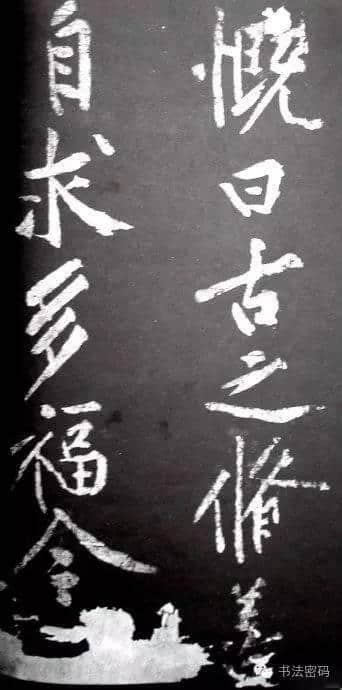 慨曰古之脩善
自求多福今
书法密码